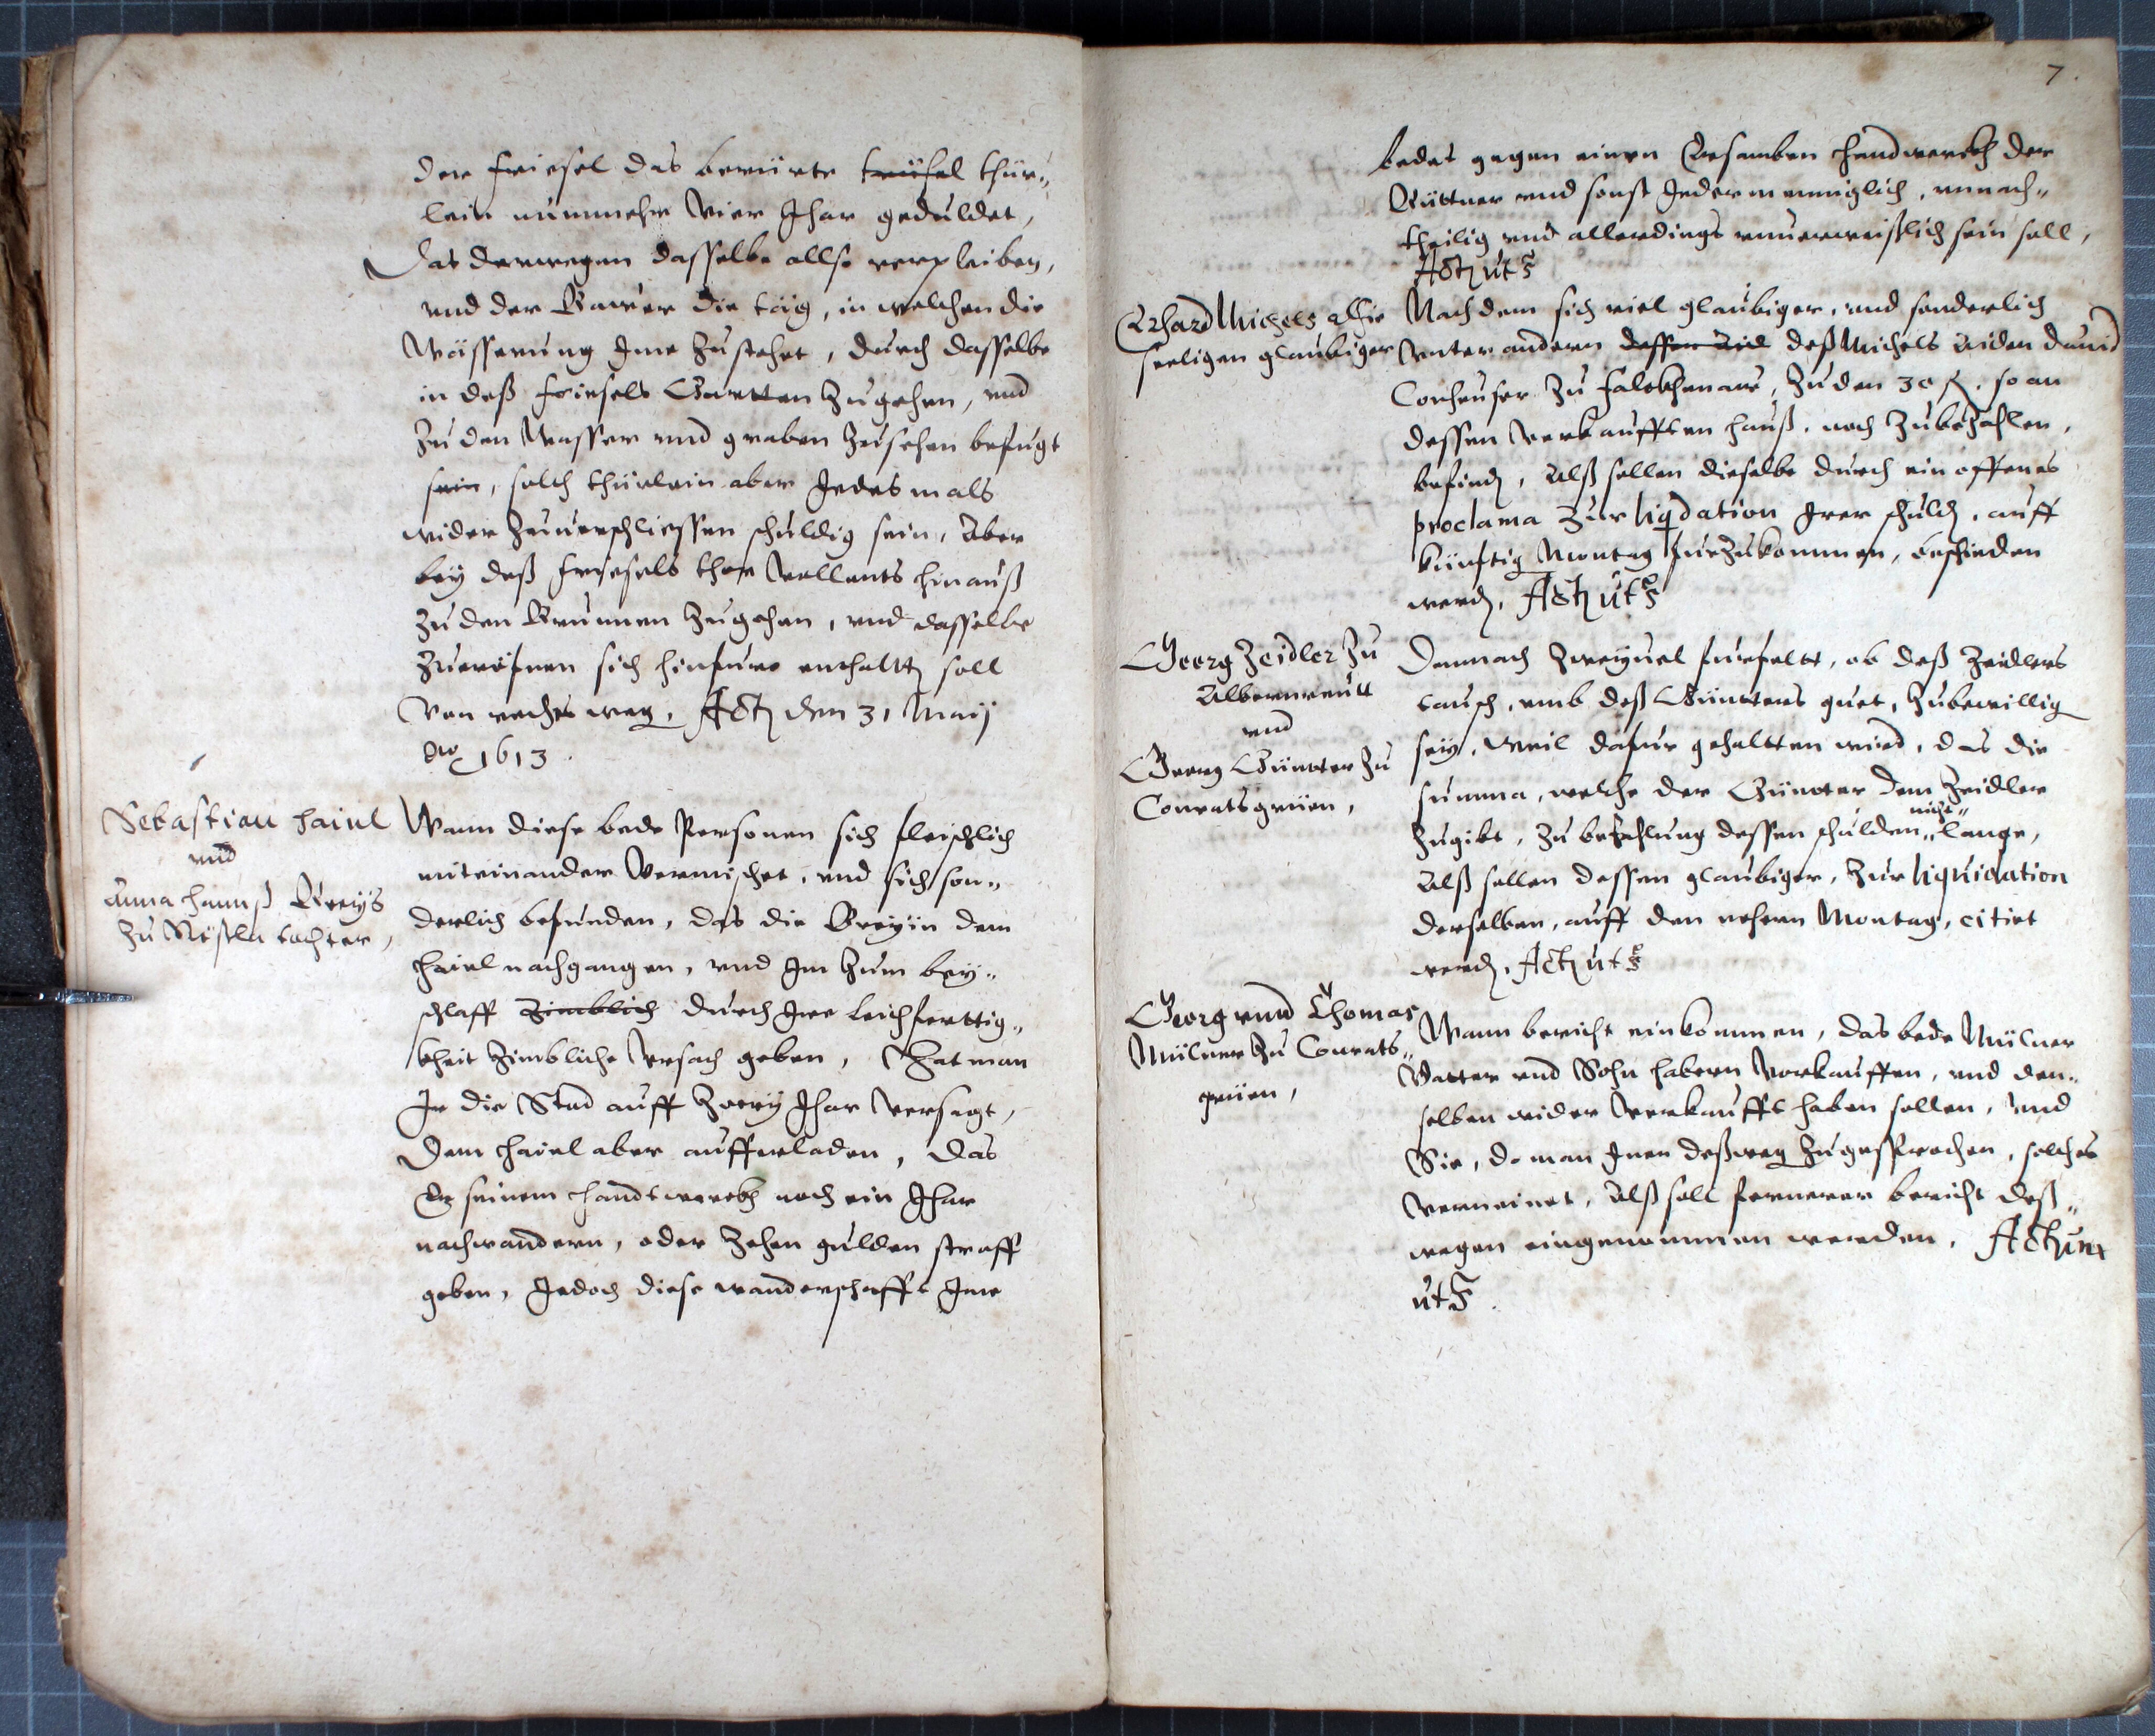 der Friesel das berürte trüsel thür„
lein nunmehr Vier Jhar geduldet,
Das derwegen dasselbe allso verpleiben,
vnd der Bawer die täg, in welchen die
Wässerung Jme zustehet, durch dasselbe
in deß Friesels Gartten zugehen, vnd
zu den Wasser vnd graben zusehen befugt
sein, solch thürlein aber Jedesmals
wider zuuerschliessen schuldig sein, Aber
bey deß Friesels thor vollents hinauß
zu den Brunnen zugehen, vnd dasselbe
zueröfnen sich hinfuro enthaltten soll
Von rechts weg. Act. den 31 Maij
Ao 1613.
Sebastian Haiel
vnd
Anna Hannß Breys
zu Neßla tochter,
Wann diese bede Personen sich fleischlich
miteinander Vermischet, vnd sich son„
derlich befunden, das die Breyin dem
Haiel nachgangen, vnd Jm zum bey„
schlaff zimblich durch Jre leichferttig„
kheit zimbliche Vrsach geben, That man
Jr die Stad auff zwey Jhar Versagt,
Dem Haiel aber aufferladen, Das
Er seinem Handtwerckh noch ein Jhar
nachwandern, oder zehen gulden straff
geben, Jedoch diese wanderschafft Jme
7.
bedes gegen einen Ersamben Handwerckh der
Büttner vnd sonst Jedermenniglich, vnnach„
theilig vnd allerdings vnuerweißlich sein soll,
Act. ut s.
Erhard Michels Alhie
seeligen glaubiger
Nachdem sich viel glaubiger, vnd sonderlich
Vnter andern dessen Aid deß Michels Aiden Dauid
zu Falckhenaw, zu den 30 fl. so an
dessen Verkaufften hauß, noch zubezahlen,
befinden, Alß sollen dieselbe durch ein offenes
proclama zur liqdation Jrer schulden, auff
künftig Montag fürzukommen, beschieden
werden, Act. ut s.
Georg Zeidler zu
Albernreutt
vnd
Georg Güntter zu
Conratsgrüen,
Demnach zweyuel fürfelt, ob deß Zeidlers
tausch, vmb deß Güntters guet, zubewillig
sey, Weil dafur gehaltten wird, das die
summa, welche der Günter dem Zeidler
zugibt, zu bezahlung dessen schulden „nicht„ lange,
Alß sollen dessen glaubiger, zur liquidation
derselben, auff den nehern Montag, citirt
werden, Act. ut s.
Georg vnnd Thomas
Mülner zu Conrats„
grüen,
Wann bericht einkommen, das bede Mülner
Vatter vnd Sohn habern Vorkauffen, vnd den„
selben wider Verkaufft haben sollen, Vnd
Sie, do man Jnen deßweg zugesprochen, solches
Verneinet, Alß soll fernerer bericht deß„
wegen eingenommen werden, Actum
ut s.